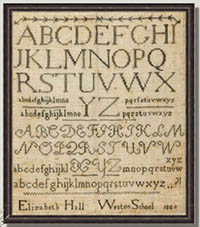 ABCDEFGHI
JKLMNOPQ
RSTUVWX
abcdefghijklmno YZ pqrstuvwxyz
abcdefghijklmno pqrstuvwxyz
ABCDEFGHIJKLM
NOPQRSTUVW
abcdefghijkl XYZ mnopqrstuvw
xyz
abcdefghijklmnopqrstuvwxyz
Elizabeth Hall Weston School